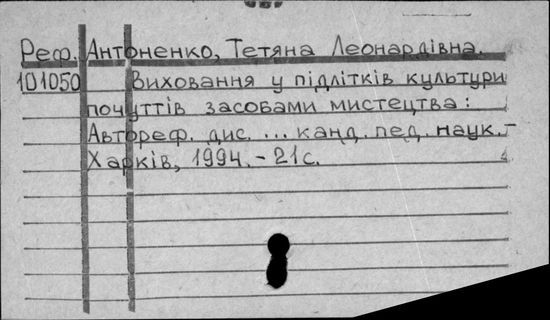 Реф. Антоненко, Тетяна Леонардівна.
101050 Виховання у підлітків культури
почуттів засобами мистецтва:
Автореф. дис ... канд. пед. наук.-
Харків, 1994.-21с.